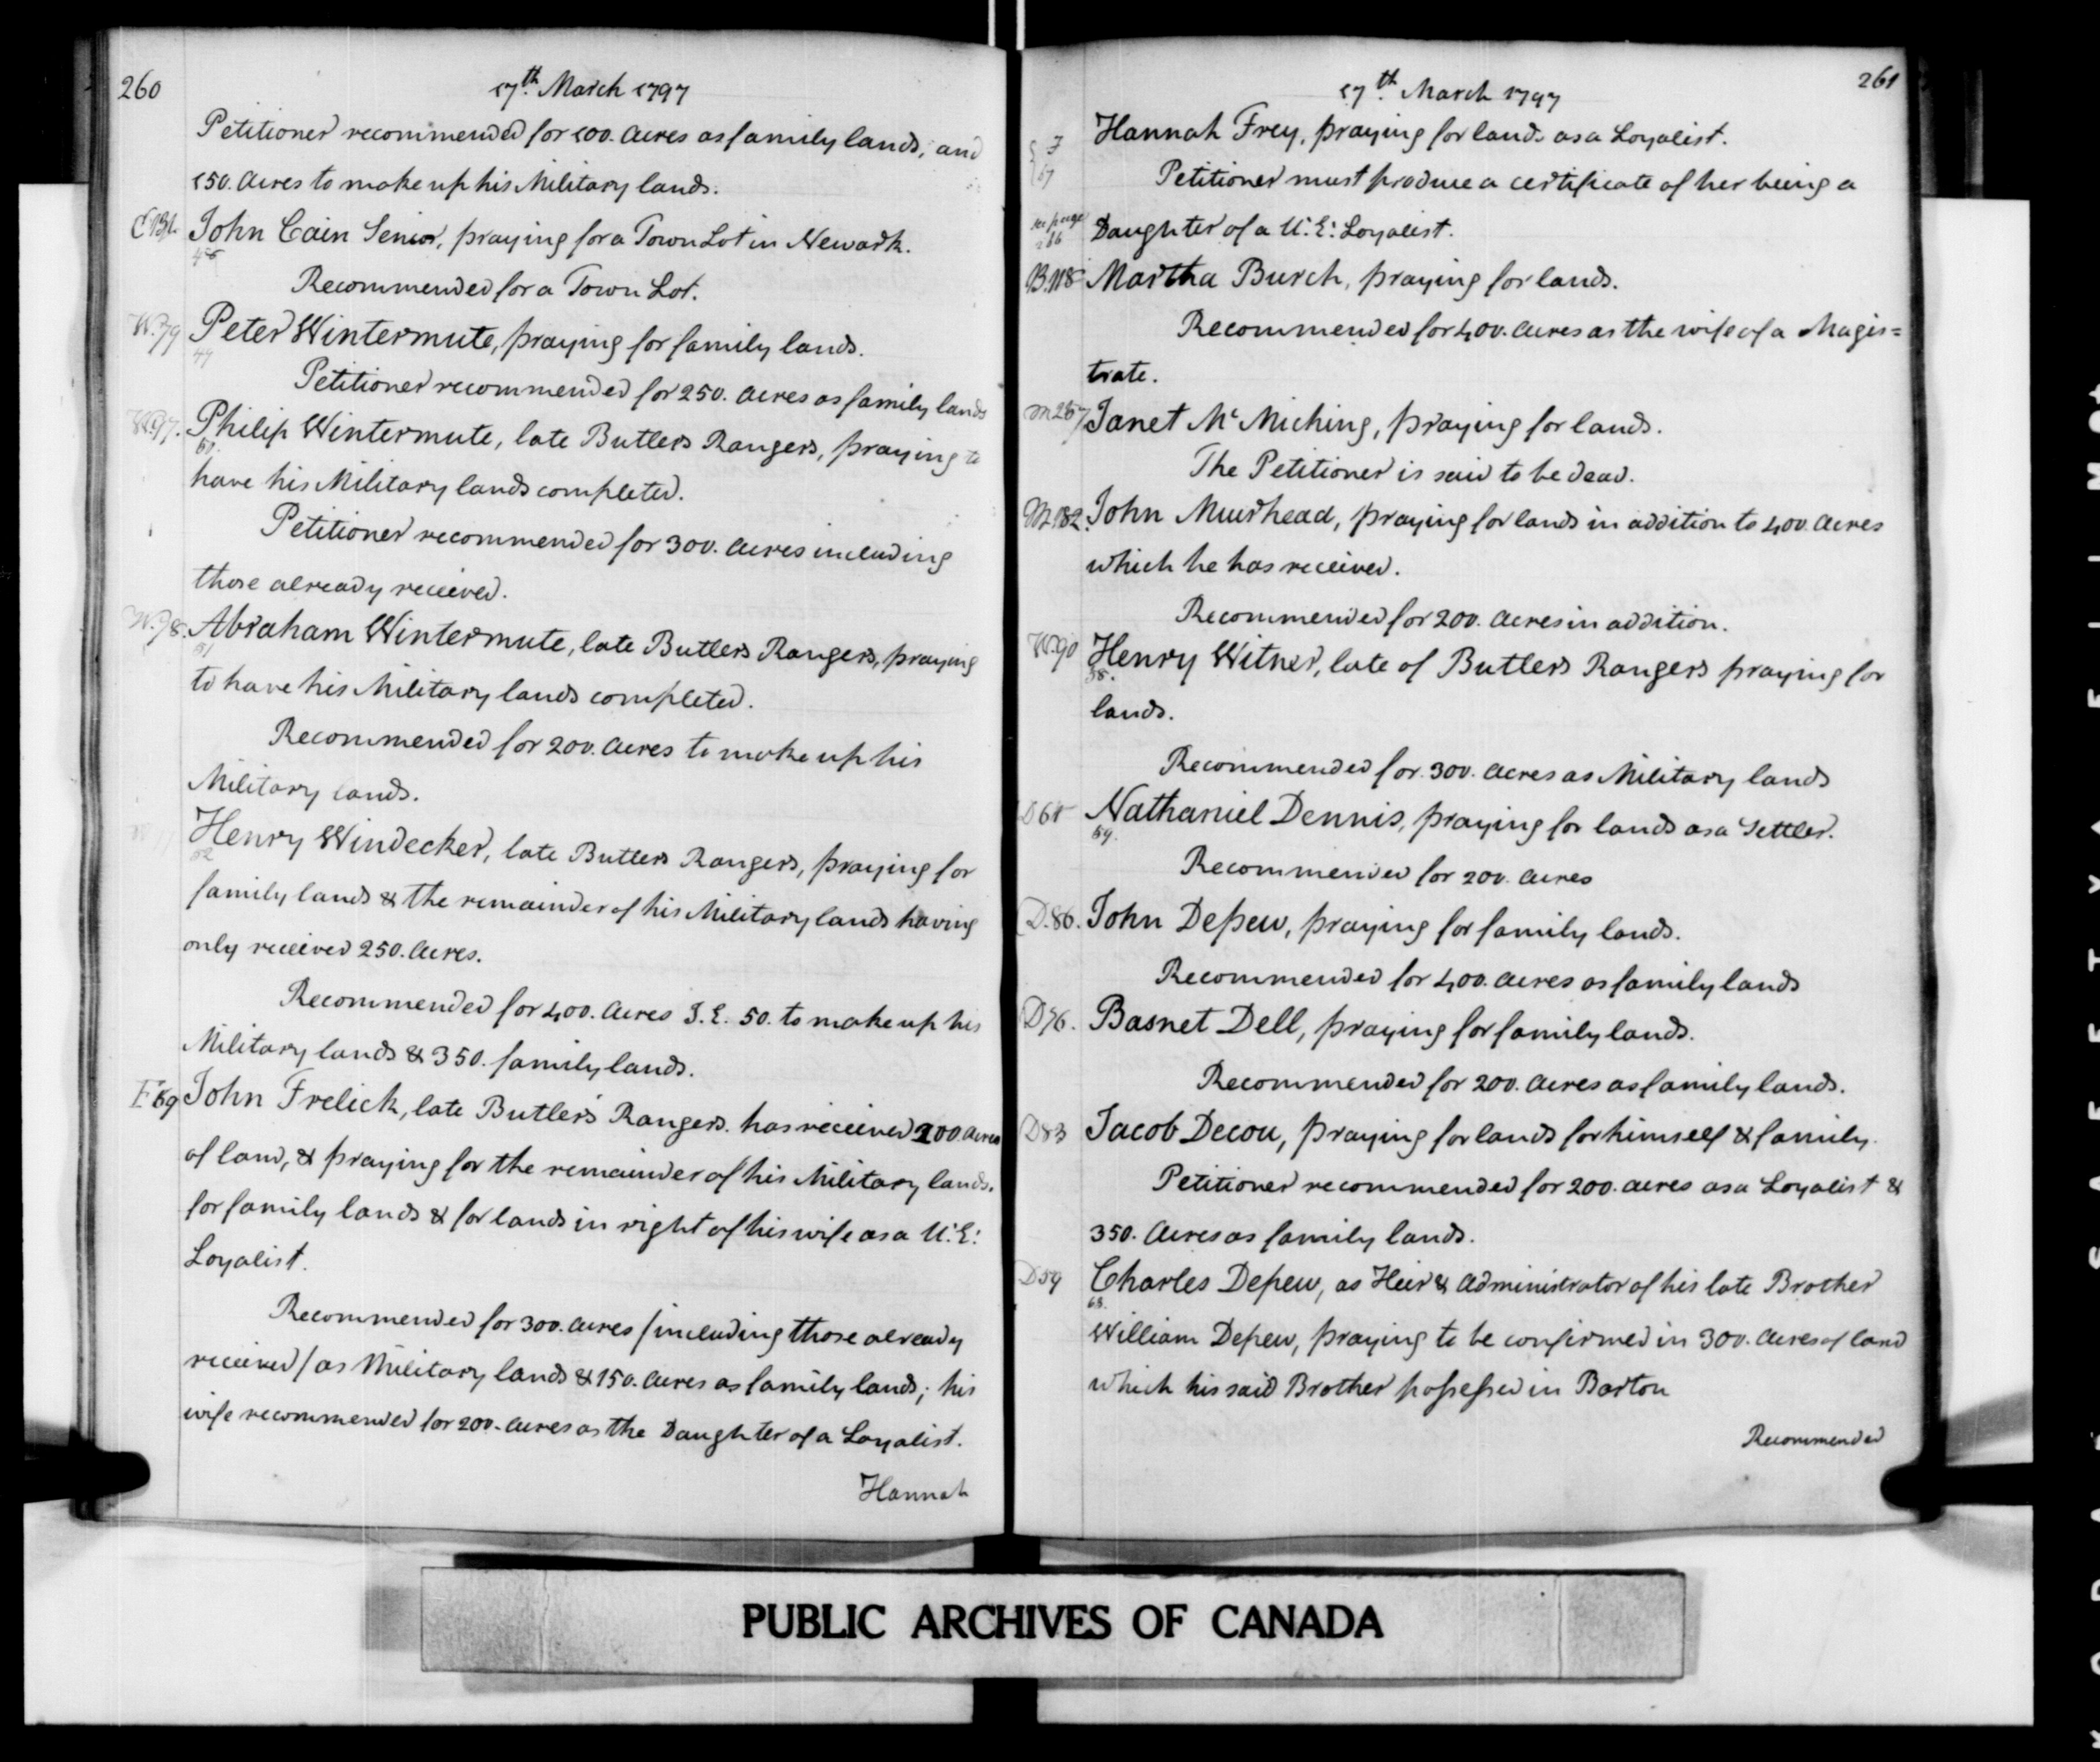 260
17th March 1797
Petitioner recommended for 100. Acres as family lands, and
150. Acres to make up his Military lands.
John Cain Senior, praying for a Town Lot in Newark.
48
Recommended for a Town Lot.
W.79 Peter Wintermute, praying for family lands.
49
Petitioner recommended for 250. Acres as family lands
W.97. Philip Wintermute, late Butlers Rangers, praying to
50.
have his Military lands completed.
Petitioner recommended for 300. Acres including
those already received.
W.78. Abraham Wintermute, late Butlers Rangers, praying
51
to have his Military lands completed.
Recommended for 200. Acres to make up his
Military lands.
Henry Windecker, late Butlers Rangers, praying for
52
family lands & the remainder of his Military lands having
only received 250. Acres.
Recommended for 400. Acres I.E. 50. to make up his
Military lands & 350. family lands.
F69 John Frelick, late Butler's Rangers. has received 200 Acres
of land, & praying for the remainder of his Military lands.
for family lands & for lands in right of his wife as a U.E:
Loyalist.
Recommended for 300. Acres / including those already
received / as Military lands & 150. Acres as family lands; his
wife recommended for 200. Acres as the Daughter of a Loyalist.
Hannah
261
17th March 1797
Hannah Frey, praying for lands as a Loyalist.
Petitioner must produce a certificate of her being a
see page
Daughter of a U.E: Loyalist.
B.118 Martha Burch, praying for lands.
Recommended for 400. Acres as the wife of a Magis=
trate.
M257 Janet Mc Miching, praying for lands.
The Petitioner is said to be dead.
M.182. John Muirhead, praying for lands in addition to 400. Acres
which he has received.
Recommended for 200. Acres in addition.
W.90 Henry Witner, late of Butlers Rangers praying for
58.
lands.
Recommended for 300. Acres as Military lands
D61 Nathaniel Dennis, praying for lands as a Settler.
59.
Recommended for 200. Acres
D.86. John Depew, praying for family lands.
Recommended for 400. Acres as family lands
D76. Basnet Dell, praying for family lands.
Recommended for 200. Acres as family lands.
D83 Jacob Decou, praying for lands for himself & family.
Petitioner recommended for 200. acres as a Loyalist &
350. Acres as family lands.
D59 Charles Depew, as Heir & Administrator of his late Brother
63.
William Depew, praying to be confirmed in 300. Acres of land
which his said Brother possessed in Barton
Recommended
PUBLIC ARCHIVES OF CANADA